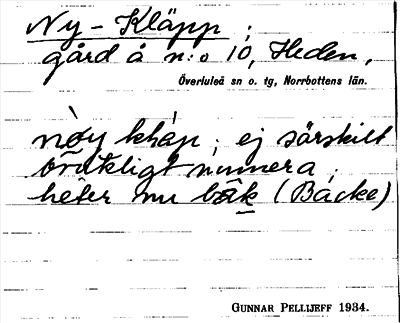 Ny-Kläpp;
gård å n:o 10, Heden,
Överluleå sn o. tg, Norrbottens län.
nòy kḷáp; ej särskilt
brukligt numera;
heter nu bäk (Bäcke)
GUNNAR PELLIJEFF 1934.